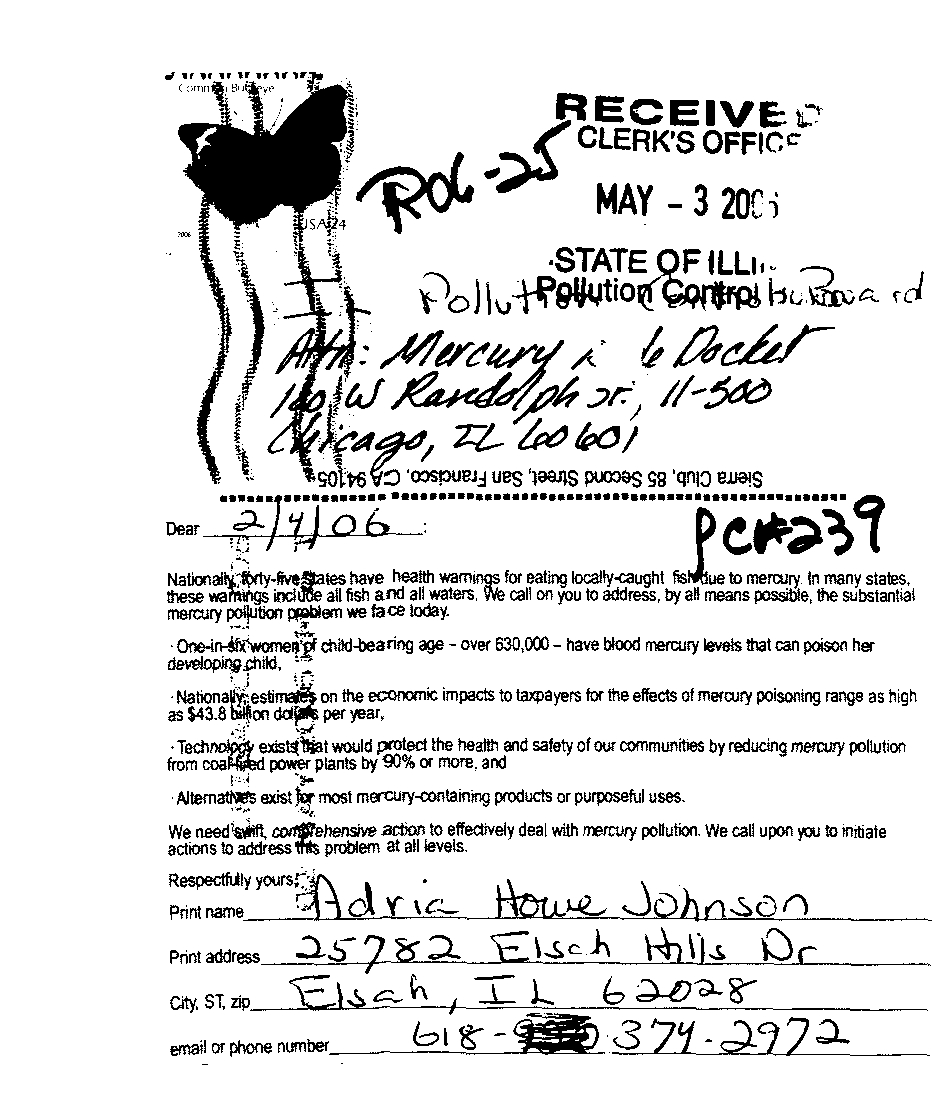 Common Buckeye
RECEIVED
CLERK'S OFFICE
R06-25
MAY - 3 2006
USA 24
2006
STATE OF ILLI
Pollution Control Board
IL Pollution Control Board
Attn: Mercury Docket
100 W Randolph St., 11-500
Chicago, IL 60601
Sierra Club, 85 Second Street, San Francisco, CA 94105
Dear 2/4/06 :
PC#239
Nationally, forty-five states have health warnings for eating locally-caught fish due to mercury. In many states,
these warnings include all fish and all waters. We call on you to address, by all means possible, the substantial
mercury pollution problem we face today.
· One-in-six women of child-bearing age – over 630,000 – have blood mercury levels that can poison her
developing child,
· Nationally, estimates on the economic impacts to taxpayers for the effects of mercury poisoning range as high
as $43.8 billion dollars per year,
· Technology exists that would protect the health and safety of our communities by reducing mercury pollution
from coal-fired power plants by 90% or more, and
· Alternatives exist for most mercury-containing products or purposeful uses.
We need swift, comprehensive action to effectively deal with mercury pollution. We call upon you to initiate
actions to address this problem at all levels.
Respectfully yours,
Print name Adria Howe Johnson
Print address 25782 Elsah Hills Dr
City, ST, zip Elsah, IL 62028
email or phone number 618- 374-2972